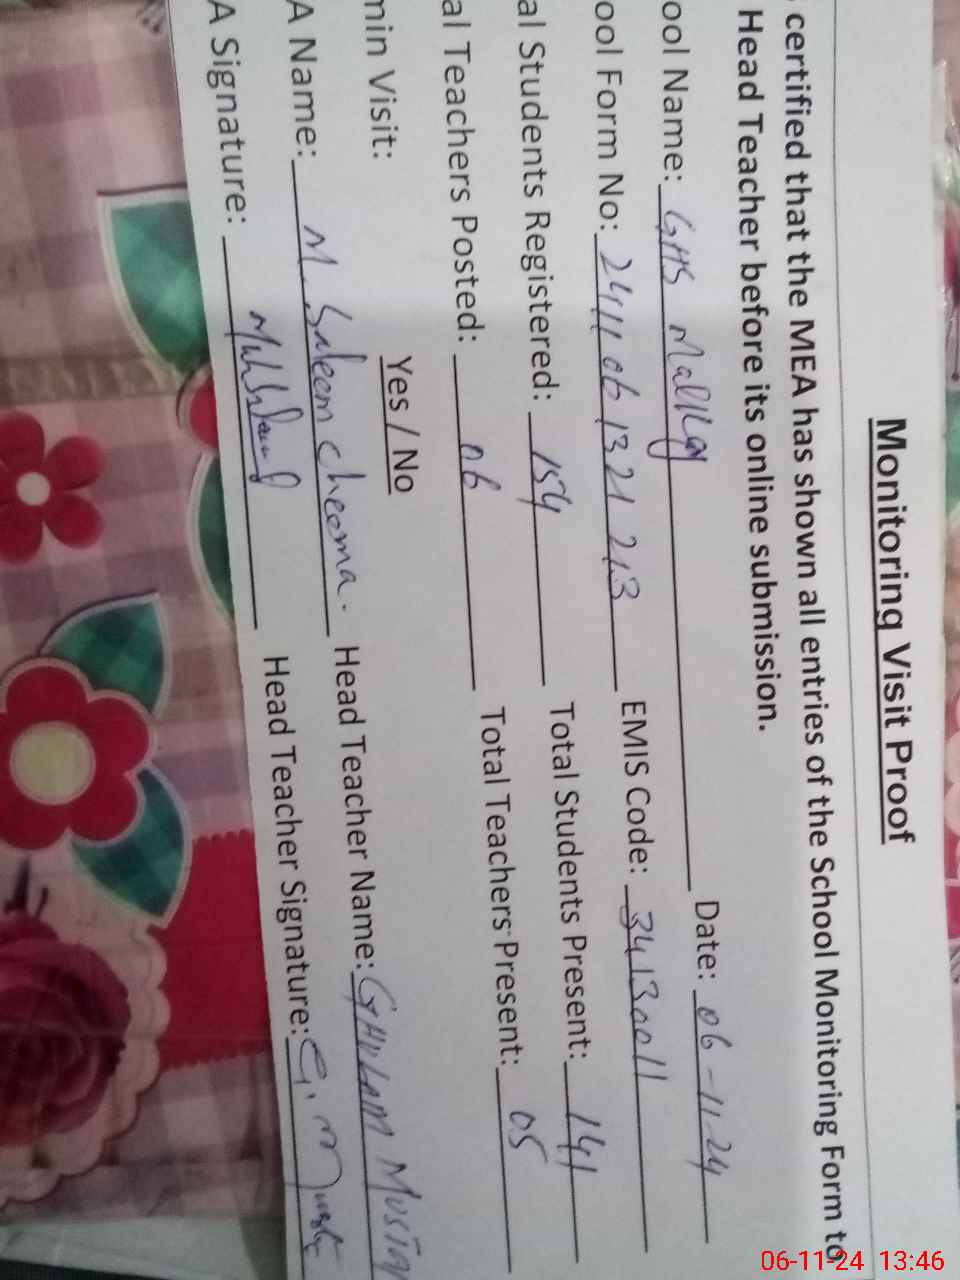 Monitoring Visit Proof
certified that the MEA has shown all entries of the School Monitoring Form to
Head Teacher before its online submission.
ool Name: GHS Date: 06-11-24
ool Form No: 2411061321213 EMIS Code: 34130011
al Students Registered: 154 Total Students Present: 141
al Teachers Posted: 06 Total Teachers Present: 05
min Visit: Yes / No
A Name: M. Saleem cheema. Head Teacher Name: GHULAM
A Signature: Head Teacher Signature:
06-11-24 13:46